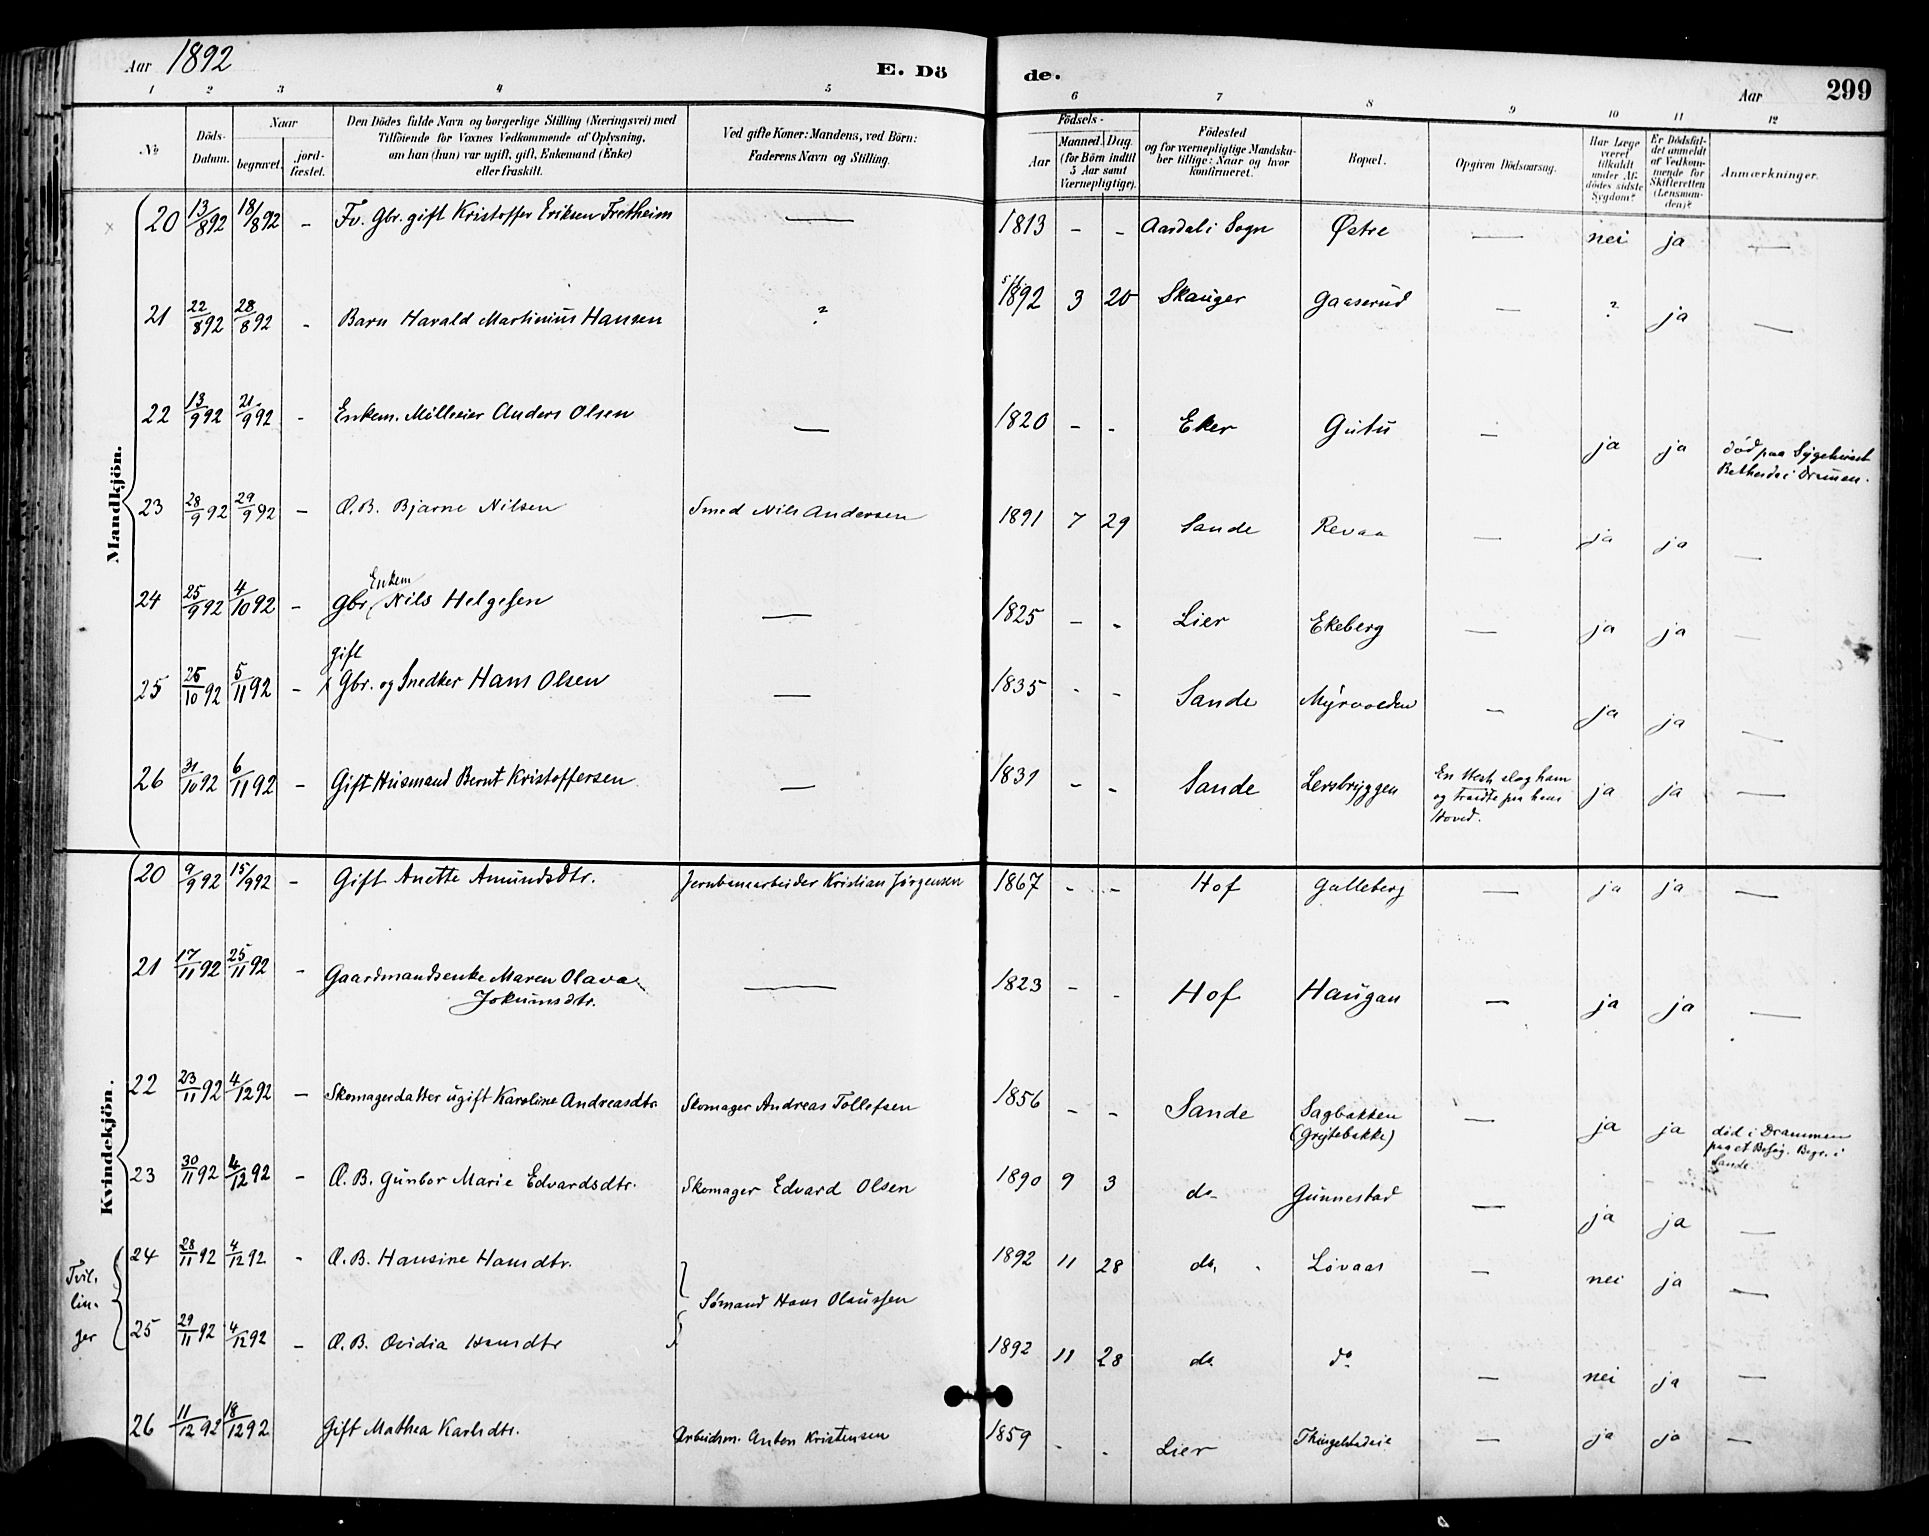 Aar 1892 E. Dö de. Aar 299
1 2 3 4 5 6 7 8 9 10 11 12
No
Döds-Datum.
Naar
begravet. jordfæstet.
Den Dödes fulde Navn og borgerlige Stilling (Næringsvei) med
Tilföiende for Voxnes Vedkommende af Oplysning,
om han (hun) var ugift, gift, Enkemand (Enke)
eller fraskilt.
Ved gifte Koner: Mandens, ved Börn:
Faderens Navn og Stilling.
Födsels-
Aar Maaned. Dag.
(for Börn indtil
5 Aar samt
Værnepligtige).
Födested
og for værnepligtige Mandskaber tillige: Naar og hvor
konfirmeret.
Bopæl.
Opgiven Dödsaarsag.
Har Læge
været
tilkaldt
under Afdödes sidste
Sygdom?
Er Dödsfaldet anmeldt
af Vedkommende for
Skifteretten
(Lensmanden)?
Anmærkninger.
Mandkjön.
20 13/8 92 18/8 92 - Fv. Gbr. gift Kristoffer Eriksen Fretheim — 1813 - - Aardal i Sogn Østre — nei ja —
21 22/8 92 28/8 92 - Barn Harald Martinius Hansen ? 1892 3 20 Skauger Gaaserud — ? ja —
22 13/9 92 21/9 92 - Enkem. Mölleier Anders Olsen — 1820 - - Eker Gutu — ja ja død paa Sygehuset
Bethesda i Dramen.
23 28/9 92 29/9 92 - Æ. B. Bjarne Nilsen Smed Nils Andersen 1891 7 29 Sande Revaa — ja ja —
24 25/9 92 4/10 92 - Gbr. Enkem Nils Helgesen — 1825 - - Lier Ekeberg — ja ja —
gift
25 25/10 92 5/11 92 - Gbr. og Snedker Hans Olsen — 1835 - - Sande Myrvolden — ja ja —
26 31/10 92 6/11 92 - Gift Husmand Bernt Kristoffersen — 1831 - - Sande Lersbryggen En Hest slog ham
og traadte paa hans
Hoved. ja ja —
Kvindekjön.
20 9/9 92 15/9 92 - Gift Anette Amundsdtr. Jernbanearbeider Kristian Jørgensen 1867 - - Hof Galleberg — ja ja —
21 17/11 92 25/11 92 - Gaardmandsenke Maren Olava
Jokumsdtr. — 1823 - - Hof Haugan — ja ja —
22 23/11 92 4/12 92 - Skomagerdatter ugift Karoline Andreasdtr. Skomager Andreas Tollefsen 1856 - - Sande Sagbakken
(Grytebakke) — ja ja død i Drammen
paa et Besøg. Begr. i
Sande.
23 30/11 92 4/12 92 - Æ. B. Gunbor Marie Edvardsdtr. Skomager Edvard Olsen 1890 9 3 do. Gunnestad — ja ja —
Tvil-
lin-
ger
24 28/11 92 4/12 92 - Æ. B. Hansine Hansdtr. 1892 11 28 do. Løvaas — nei ja —
Sømand Hans Olaussen
25 29/11 92 4/12 92 - Æ. B. Ovidia Hansdtr 1892 11 28 do. do — nei ja —
26 11/12 92 18/12 92 Gift Mathea Karlsdtr. Arbeidsm. Anton Kristensen 1859 - - Lier — ja ja —